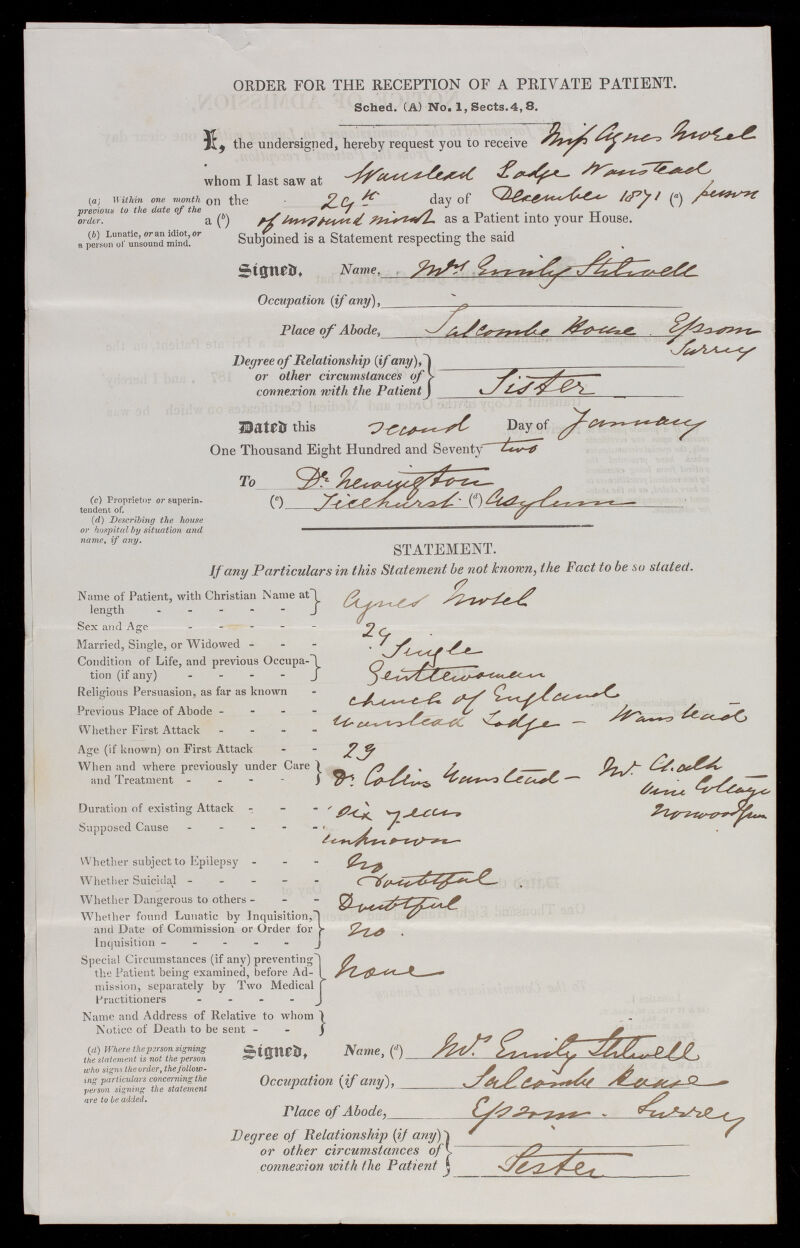 ORDER FOR THE RECEPTION OF A PRIVATE PATIENT.
Sched. (A) No. 1, Sects. 4, 8.
I, the undersigned, hereby request you to receive Miss Agnes
whom I last saw at Wanstead Lodge Wanstead
(a) Within one month previous to the date of the order.
on the 29th day of December 1871 (a) person
(b) Lunatic, or an idiot, or a person of unsound mind.
a (b) of unsound mind as a Patient into your House.
Subjoined is a Statement respecting the said
Signed, Name, Mrs Emily Stilwell
Occupation (if any),
Place of Abode, Salcombe House Epsom
Surrey
Degree of Relationship (if any),
or other circumstances of
connexion with the Patient Sister
Dated this second Day of January
One Thousand Eight Hundred and Seventy two
To Dr. Newington
(c) Proprietor or superintendent of.
(c) Ticehurst (d) Asylum
(d) Describing the house or hospital by situation and name, if any.
STATEMENT.
If any Particulars in this Statement be not known, the Fact to be so stated.
Name of Patient, with Christian Name at
length - - - - - Agnes
Sex and Age - - - - - 29
Married, Single, or Widowed - - - Single
Condition of Life, and previous Occupa-
tion (if any) - - - - Gentlewoman
Religious Persuasion, as far as known - church of England
Previous Place of Abode - - - - Wanstead Lodge - Wanstead
Whether First Attack - - - -
Age (if known) on First Attack - - 23
When and where previously under Care
and Treatment - - - - - Dr. Collins Wanstead - Mr. Chalk
Vine Cottage
Duration of existing Attack - - - six years
Supposed Cause - - - - - unknown
Whether subject to Epilepsy - - - No
Whether Suicidal - - - - - Doubtful
Whether Dangerous to others - - - Doubtful
Whether found Lunatic by Inquisition,
and Date of Commission or Order for
Inquisition - - - - - No.
Special Circumstances (if any) preventing
the Patient being examined, before Ad-
mission, separately by Two Medical
Practitioners - - - - None
Name and Address of Relative to whom
Notice of Death to be sent - -
(d) Where the person signing the statement is not the person who signs the order, the following particulars concerning the person signing the statement are to be added.
Signed, Name, (d) Mrs. Emily Stilwell
Occupation (if any), Salcombe House
Place of Abode, Epsom. Surrey
Degree of Relationship (if any)
or other circumstances of
connexion with the Patient Sister